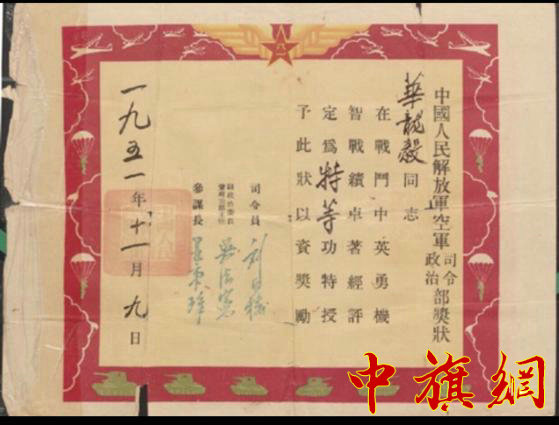 八一
中國人民解放軍空軍司令政治部獎狀
華龍毅同志
在戰鬥中英勇機
智戰績卓著經評
定為特等功特授
予此狀以資獎勵
司令員 劉亞樓
副政治委員
參謀長 王秉璋
一九五一年十一月九日
中旗網